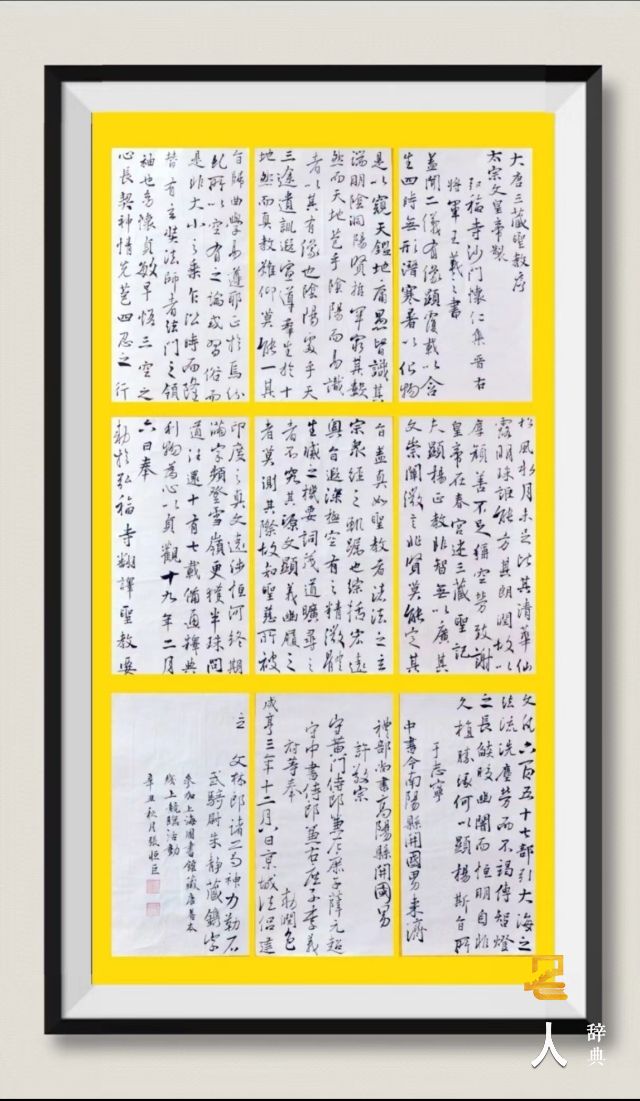 大唐三藏聖教序
太宗文皇帝製
弘福寺沙門懷仁集晉右
將軍王羲之書
蓋聞二儀有像顯覆載以含
生四時無形潛寒暑以化物
是以窺天鑑地庸愚皆識其
端明陰洞陽賢哲罕窮其數
然而天地苞乎陰陽而易識
者以其有像也陰陽處乎天
三途遺訓遐宣導群生於十
地然而真教難仰莫能一其
旨歸曲學易遵邪正於焉紛
糺所以空有之論或習俗而
是非大小之乘乍沿時而隆
替有玄奘法師者法門之領
袖也幼懷貞敏早悟三空之
心長契神情先苞四忍之行
松風水月未足比其清華仙
露明珠詎能方其朗潤故以
厚顏善不足稱空勞致謝
皇帝在春宮述三藏聖記
夫顯揚正教非智無以廣其
文崇闡微言非賢莫能定其
旨蓋真如聖教者諸法之玄
宗眾經之軌躅也綜括宏遠
奧旨遐深極空有之精微體
生滅之機要詞茂道曠尋之
者不究其源文顯義幽履之
者莫測其際故知聖慈所被
印度之真文遠涉恒河終期
滿字頻登雪嶺更獲半珠問
道往還十有七載備通釋典
利物為心以貞觀十九年二月
六日奉
勅於弘福寺翻譯聖教要
文凡六百五十七部引大海之
法流洗塵勞而不竭傳智燈
之長燄皎幽闇而恒明自非
久植勝緣何以顯揚斯旨所
于志寧
中書令南陽縣開國男來濟
禮部尚書高陽縣開國男
許敬宗
守黃門侍郎兼左庶子薛元超
守中書侍郎兼右庶子李義
府等奉 勅潤色
咸亨三年十二月八日京城法侶建
立 文林郎諸葛神力勒石
武騎尉朱靜藏鐫字
參加上海圖書館藏唐善本
线上競臨活動
辛丑秋月張恒臣
人 辞典